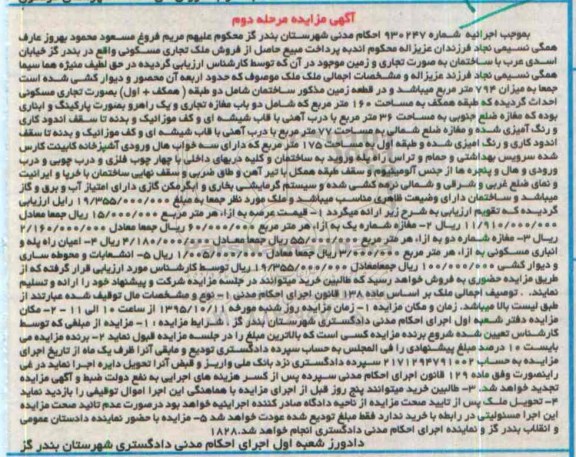 آگهی مزایده مرحله دوم
بموجب اجرائیه شماره ۹۳۰۲۴۷ احکام مدنی شهرستان بندر گز محکوم علیهم مریم فروغ مسعود محمود بهروز عارف
همگی نسیمی نجاد فرزندان عزیزاله محکوم اند به پرداخت مبیع حاصل از فروش ملک تجاری مسکونی واقع در بندر گز خیابان
اسدی عرب با ساختمان به صورت تجاری و زمین موجود در آن که توسط کارشناس ارزیابی گردیده در حق لطیف منیژه هما سیما
همگی نسیمی نجاد فرزند عزیزاله و مشخصات اجمالی ملک ملک موصوف که حدود اربعه آن محصور و دیوار کشی شده است
جمعا به میزان ۷۹۴ متر مربع میباشد و در قطعه زمین مذکور ساختمان شامل دو طبقه ( همکف + اول) بصورت تجاری مسکونی
احداث گردیده که طبقه همکف به مساحت ۱۶۰ متر مربع که شامل دو باب مغازه تجاری و یک راهرو بصورت پارکینگ و انباری
بوده که مغازه ضلع جنوبی به مساحت ۳۶ متر مربع با درب آهنی با قاب شیشه ای و کف موزائیک و بدنه تا سقف اندود کاری
و رنگ آمیزی شده و مغازه ضلع شمالی به مساحت ۷۷ متر مربع با درب آهنی با قاب شیشه ای و کف موزائیک و بدنه تا سقف
اندود کاری و رنگ امیزی شده و طبقه اول به مساحت ۱۷۵ متر مربع که دارای سه خواب هال ورودی آشپزخانه کابینت کارس
شده سرویس بهداشتی و حمام و تراس راه پله ورود به ساختمان و کلیه دربهای داخلی با چهار چوب فلزی و درب چوبی و درب
ورودی و هال و پنجره ها از جنس آلومینیوم و سقف طبقه همکف با تیر آهن و طاق ضربی و سقف نهایی ساختمان با خرپا و ایرانیت
و نمای ضلع غربی و شرقی و شمالی نرمه کشی شده و سیستم گرمایشی بخاری و ابگرمکن گازی دارای امتیاز آب و برق و گاز
میباشد و ساختمان دارای وضیعت ظاهری مناسب میباشد و ملک مورد نظر جمعا به مبلغ ۱۹/۳۵۵/۰۰۰/۰۰۰ ریال ارزیابی
گردیده که تقویم ارزیابی به شرح زیر ارائه میگردد ۱- قیمت عرصه به ازا، هر متر مربع ۱۵/۰۰۰/۰۰۰ ریال جمعا معادل
۱۱/۹۱۰/۰۰۰/۰۰۰ ریال ۲- مغازه شماره یک به ازا، هر متر مربع ۶۰/۰۰۰/۰۰۰ ریال جمعا معادل ۲/۱۶۰/۰۰۰/۰۰۰
ریال ۳- مغازه شماره دو به ازا، هر متر مربع ۵۵/۰۰۰/۰۰۰ ریال جمعا معادل ۴/۱۸۰/۰۰۰/۰۰۰ ریال ۴- اعیان راه پله و
انباری مسکونی به ازا، هر متر مربع ۳/۰۰۰/۰۰۰ ریال جمعا معادل ۱/۰۰۵/۰۰۰/۰۰۰ ریال ۵- انشعابات و محوطه سازی
و دیوار کشی ۱۰۰/۰۰۰/۰۰۰ ریال جمعا معادل ۱۹/۳۵۵/۰۰۰/۰۰۰ ریال توسط کارشناس مورد ارزیابی قرار گرفته که از
طریق مزایده حضوری به فروش خواهد رسید که طالبین خرید میتوانند در جلسه مزایده شرکت و پیشنهاد خود را ارائه و تسلیم
نمایند. . توصیف اجمالی ملک بر اساس ماده ۱۳۸ قانون اجرای احکام مدنی ۱- نوع و مشخصات مال توقیف شده عبارتند از
طبق لیست بالا میباشد. زمان و مکان مزایده ۱- زمان مزایده روز شنبه مورخه ۱۳۹۵/۱۰/۱۱ از ساعت ۱۰ الی ۱۱ ۲- مکان
مزایده دفتر شعبه اول اجرای احکام مدنی دادگستری شهرستان بندر گز . شرایط مزایده ۱- مزایده از مبلغی که توسط
کارشناس تعیین شده شروع برنده مزایده کسی است که بالاترین مبلغ را در جلسه مزایده قبول نماید ۲- برنده مزایده می
بایست ۱۰ درصد مبلغ پیشنهادی را فی المجلس به حساب سپرده دادگستری تودیع و مابقی آنرا ظرف یک ماه از تاریخ اجرای
مزایده به حساب ۲۱۷۱۲۹۴۷۹۱۰۰۲ سپرده دادگستری نزد بانک ملی واریز و قبض آنرا تحویل دایره اجرا نماید در غی
راینصورت وفق ماده ۱۲۹ قانون اجرای احکام مدنی سپرده پس از کسر هزینه های اجرایی به نفع دولت ضبط و آگهی مزایده
تجدید خواهد شد. ۳- طالبین خرید میتوانند پنج روز قبل از اجرای مزایده با هماهنگی این اجرا اموال توقیفی را بازدید نماید
۴- تحویل ملک پس از تایید صحت مزایده از ناحیه دادگاه صادر کننده اجرائیه خواهد بود درصورت عدم تائید صحت مزایده
این اجرا مسئولیتی در رابطه با خرید ندارد فقط مبلغ تودیع شده عودت خواهد شد ۵- مزایده با حضور نماینده دادستان عمومی
و انقلاب بندر گز و نماینده اجرای احکام مدنی دادگستری انجام خواهد شد. ۱۸۲۸
دادورز شعبه اول اجرای احکام مدنی دادگستری شهرستان بندر گز